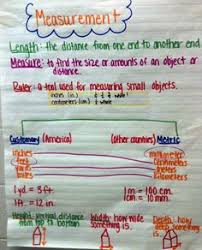 Measurement
Length: the distance from one end to another end
Measure: to find the size or amounts of an object or
distance.
Ruler: a tool used for measuring small objects.
inches (in.)
centimeters (cm.)
Customary (America) (Other countries) Metric
inches millimeter
feet centimeters
yards decimeters
miles
1 yd = 3 ft. 1 m = 100 cm.
1 ft. = 12 in. 1 cm = 10 mm.
Height: vertical distance
from top to bottom
how wide
something is.
Depth: how
deep
something is